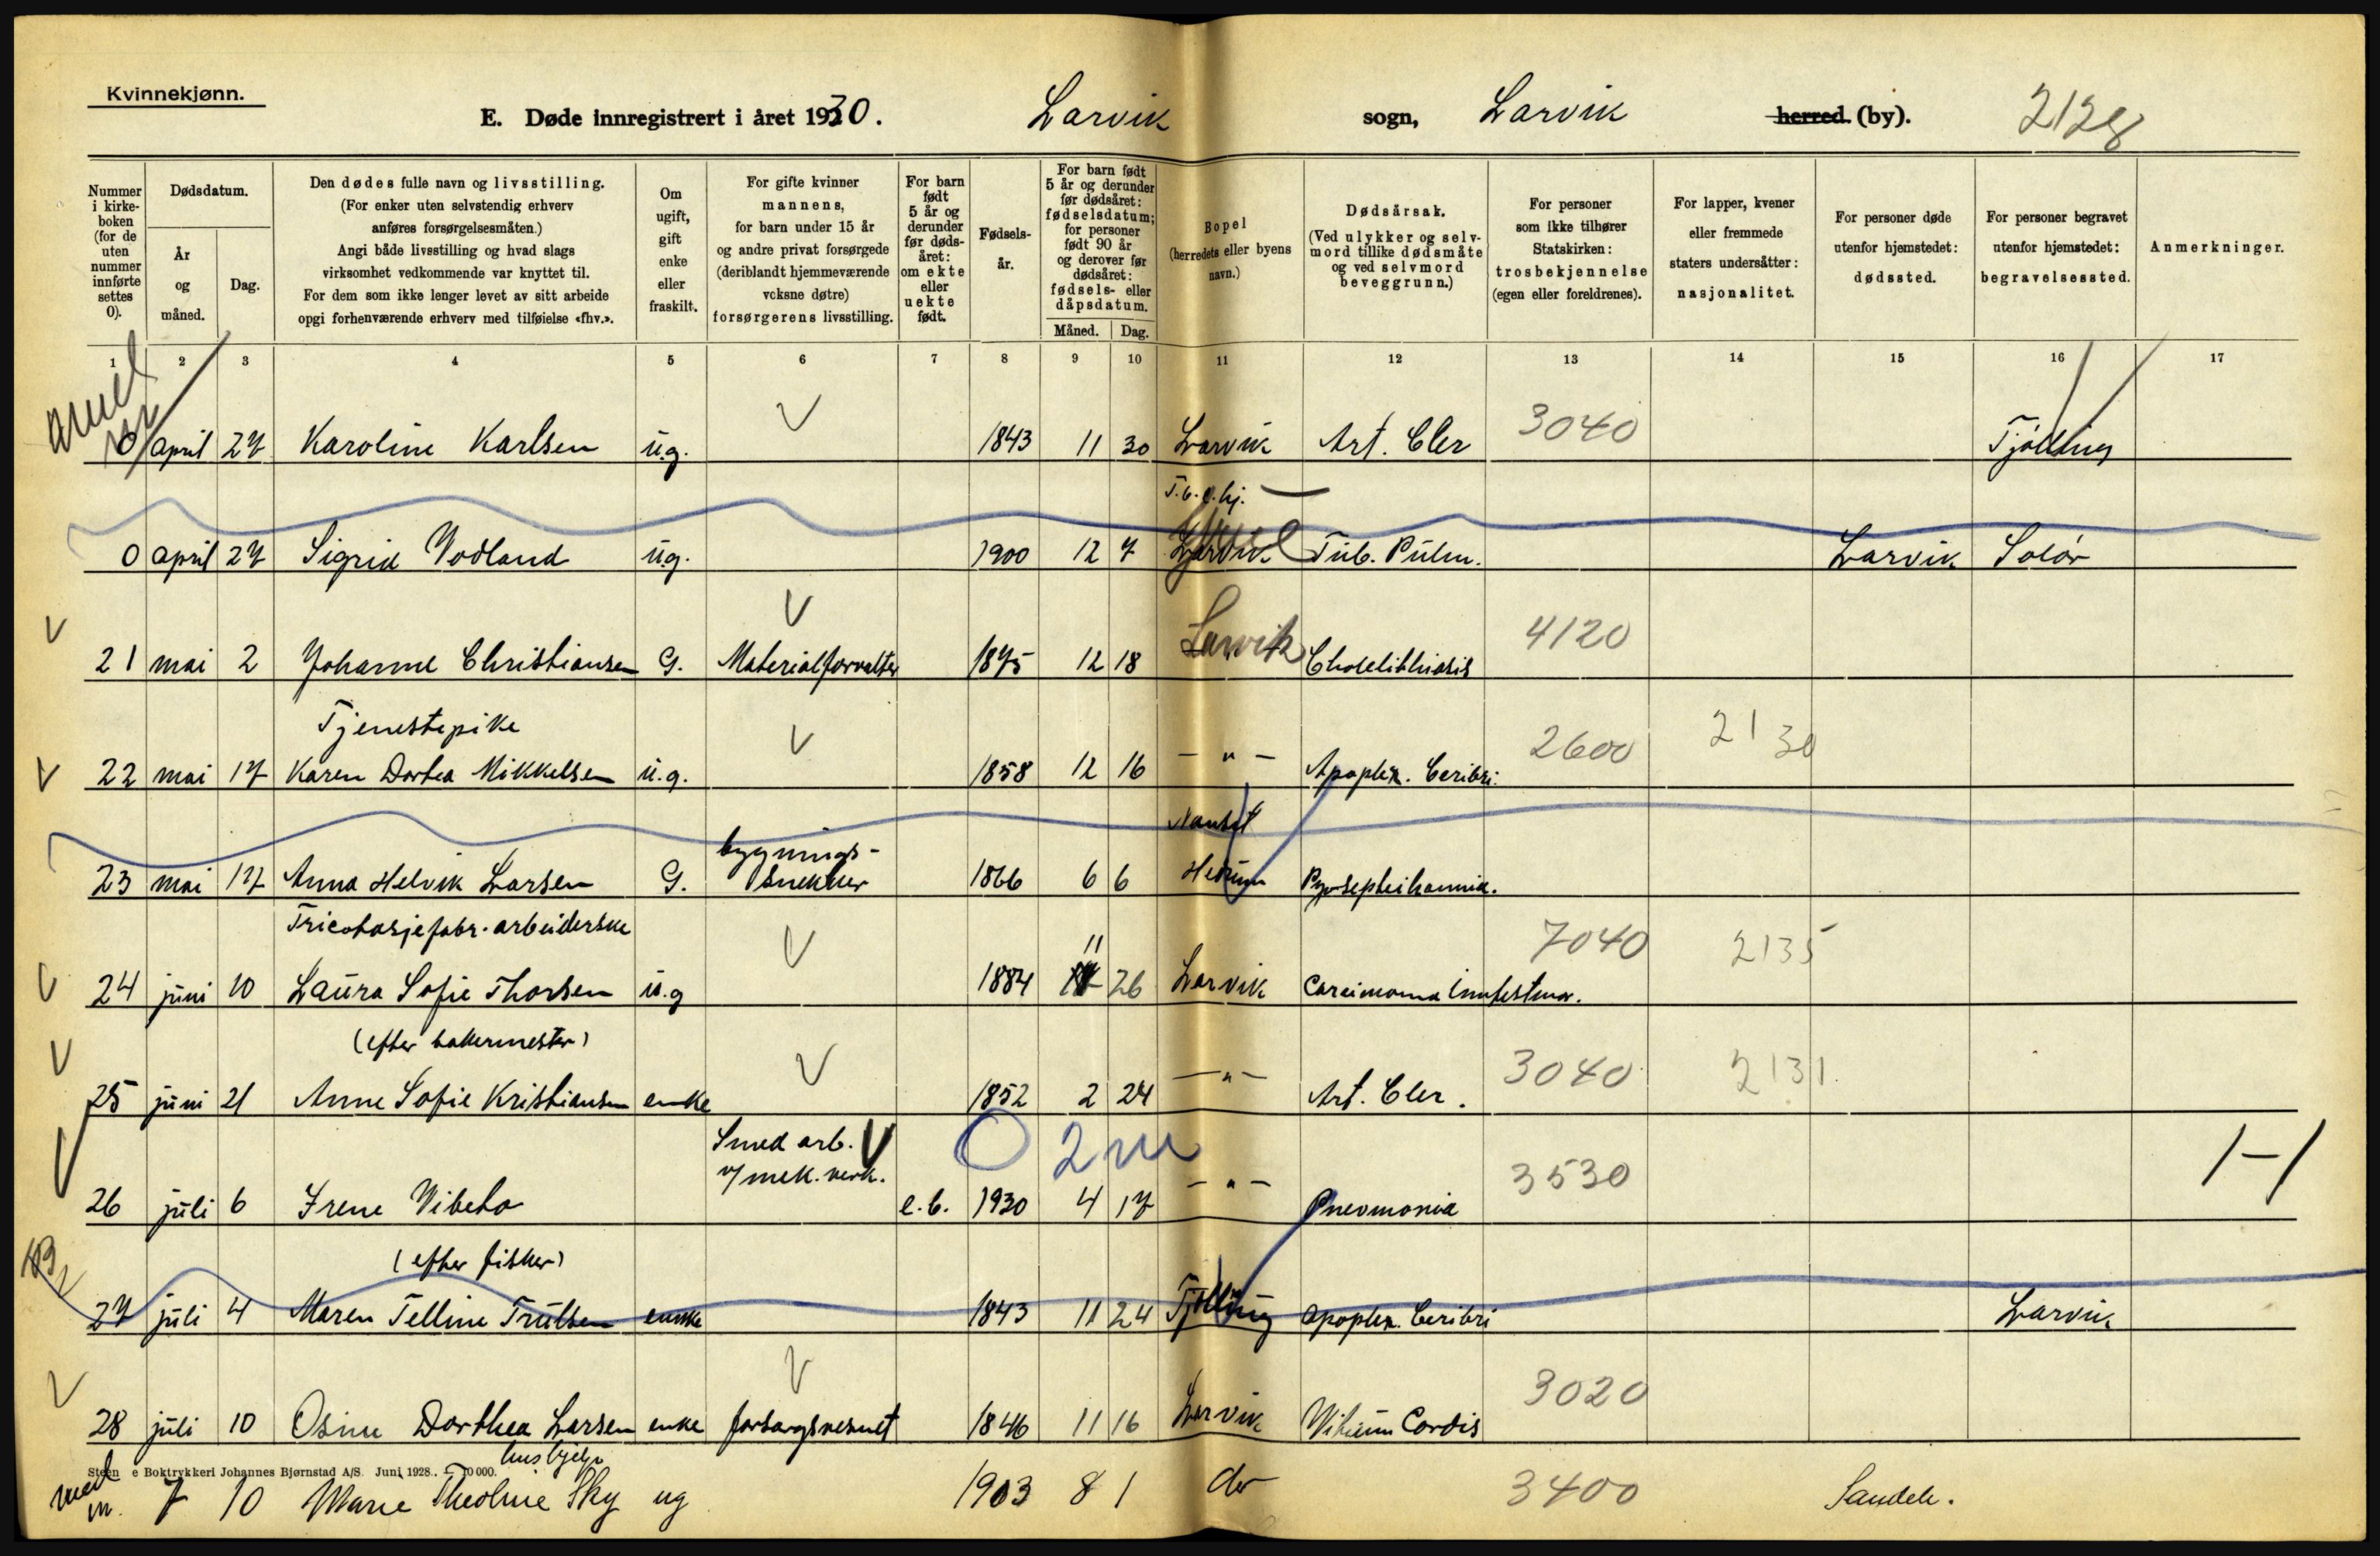 Kvinnekjønn.
E. Døde innregistrert i året 1930. Larvik sogn, Larvik herred. (by). 2128
Nummer i kirke-boken (for de uten nummer innførte settes 0).
Dødsdatum.
År og måned.
Dag.
Den dødes fulle navn og livsstilling.
(For enker uten selvstendig erhverv
anføres forsørgelsesmåten.)
Angi både livsstilling og hvad slags
virksomhet vedkommende var knyttet til.
For dem som ikke lenger levet av sitt arbeide
opgi forhenværende erhverv med tilføielse «fhv.».
Om ugift, gift enke eller fraskilt.
For gifte kvinner
mannens,
for barn under 15 år
og andre privat forsørgede
(deriblandt hjemmeværende
voksne døtre)
forsørgerens livsstilling.
For barn født 5 år og derunder før døds-året: om ekte eller uekte født.
Fødsels-år.
For barn født
5 år og derunder
før dødsåret:
fødselsdatum;
for personer
født 90 år
og derover før
dødsåret:
fødsels- eller
dåpsdatum.
Måned. Dag.
Bopel
(herredets eller byens
navn.)
Dødsårsak.
(Ved ulykker og selv-
mord tillike dødsmåte
og ved selvmord
beveggrunn.)
For personer
som ikke tilhører
Statskirken:
trosbekjennelse
(egen eller foreldrenes).
For lapper, kvener
eller fremmede
staters undersåtter:
nasjonalitet.
For personer døde
utenfor hjemstedet:
dødssted.
For personer begravet
utenfor hjemstedet:
begravelsessted.
Anmerkninger.
1 2 3 4 5 6 7 8 9 10 11 12 13 14 15 16 17
0 april 27 Karoline Karlsen u.g. 1843 11 30 Larvik Art. Cler 3040 Tjølling
T.b.c.hj.
0 april 27 Sigrid Vodland u.g. 1900 12 7 Larvik Tub. Pulm. Larvik Solør
21 mai 2 Johanne Christiansen G. Materialforvalter 1875 12 18 Larvik Cholelithiasis 4120
Tjenestepike
22 mai 17 Karen Dortea Mikkelsen u.g. 1858 12 16 - " - Apoplex. Ceribri. 2600 2130
bygnings- Nanset
23 mai 17 Anna Helvik Larsen G. snekker 1866 6 6 Hedrum
Tricotasjefabr. arbeiderske
11
24 juni 10 Laura Sofie Thorsen u.g 1884 26 Larvik Carcinoma 7040 2135
(efter bakermester)
25 juni 21 Anne Sofie Kristiansen enke 1852 2 24 - " - Art. Cler. 3040 2131
Smed arb. 0 2 m
v/ mek. verk.
26 juli 6 Irene Vibeto e.b. 1930 4 17 - " - Pneomonia 3530 1-1
(efter fisker)
27 juli 4 Maren Telline Trulsen enke 1843 11 24 Tjølling Apoplex. Ceribri Larvik
28 juli 10 Osine Dorthea Larsen enke forsorgsvesnet 1846 11 16 Larvik Vitium Cordis 3020
hushjelp
e Boktrykkeri Johannes Bjørnstad A/S. Juni 1928. — 10 000.
7 10 Marie Theoline Sky ug 1903 8 1 do 3400 Sandeh.